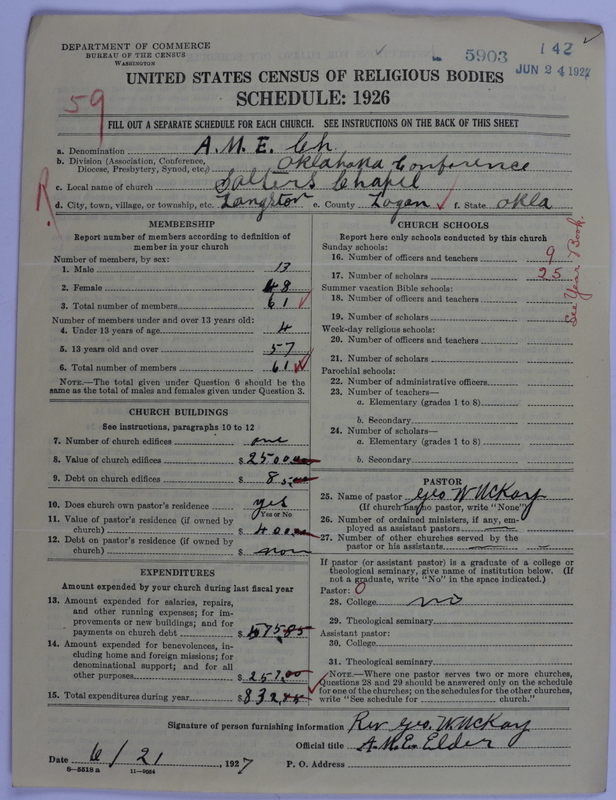 DEPARTMENT OF COMMERCE
BUREAU OF THE CENSUS
WASHINGTON
5903
142
JUN 24 1927
UNITED STATES CENSUS OF RELIGIOUS BODIES
SCHEDULE: 1926
59
FILL OUT A SEPARATE SCHEDULE FOR EACH CHURCH. SEE INSTRUCTIONS ON THE BACK OF THIS SHEET
a. Denomination A.M.E. Ch.
b. Division (Association, Conference, Diocese, Presbytery, Synod, etc.) Oklahoma Conference
c. Local name of church Salters Chapel
R
d. City, town, village, or township, etc. Langston e. County Logan f. State Okla
MEMBERSHIP
Report number of members according to definition of
member in your church
Number of members, by sex:
1. Male 13
2. Female 48
3. Total number of members 61
Number of members under and over 13 years old:
4. Under 13 years of age 4
5. 13 years old and over 57
6. Total number of members 61
NOTE.—The total given under Question 6 should be
same as the total of males and females given under Question 3.
CHURCH BUILDINGS
See instructions, paragraphs 10 to 12
7. Number of church edifices one
8. Value of church edifices $ 2500.00
9. Debt on church edifices $
10. Does church own pastor's residence yes
Yes or No
11. Value of pastor's residence (if owned by
church) $ 400.00
12. Debt on pastor's residence (if owned by
church) $ non
EXPENDITURES
Amount expended by your church during last fiscal year
13. Amount expended for salaries, repairs,
and other running expenses; for im-
provements or new buildings; and for
payments on church debt $ 575.85
14. Amount expended for benevolences, in-
cluding home and foreign missions; for
denominational support; and for all
other purposes $ 257.00
15. Total expenditures during year $ 832.85
CHURCH SCHOOLS
Report here only schools conducted by this church
Sunday schools:
16. Number of officers and teachers 9
17. Number of scholars 25
See Year Book.
Summer vacation Bible schools:
18. Number of officers and teachers
19. Number of scholars
Week-day religious schools:
20. Number of officers and teachers
21. Number of scholars
Parochial schools:
22. Number of administrative officers
23. Number of teachers—
a. Elementary (grades 1 to 8)
b. Secondary
24. Number of scholars—
a. Elementary (grades 1 to 8)
b. Secondary
PASTOR
25. Name of pastor Geo W McKay
(If church has no pastor, write "None")
26. Number of ordained ministers, if any, em-
ployed as assistant pastors
27. Number of other churches served by the
pastor or his assistants
If pastor (or assistant pastor) is a graduate of a college or
theological seminary, give name of institution below. (If
not a graduate, write "No" in the space indicated.)
Pastor: 0
28. College no
29. Theological seminary
Assistant pastor:
30. College
31. Theological seminary
NOTE.—Where one pastor serves two or more churches,
Questions 28 and 29 should be answered only on the schedule
for one of the churches; on the schedules for the other churches,
write "See schedule for church."
Signature of person furnishing information Rev Geo. W. McKay
Official title A.M.E. Elder
Date 6/21, 1927 P. O. Address
8—5518 a 11—9664